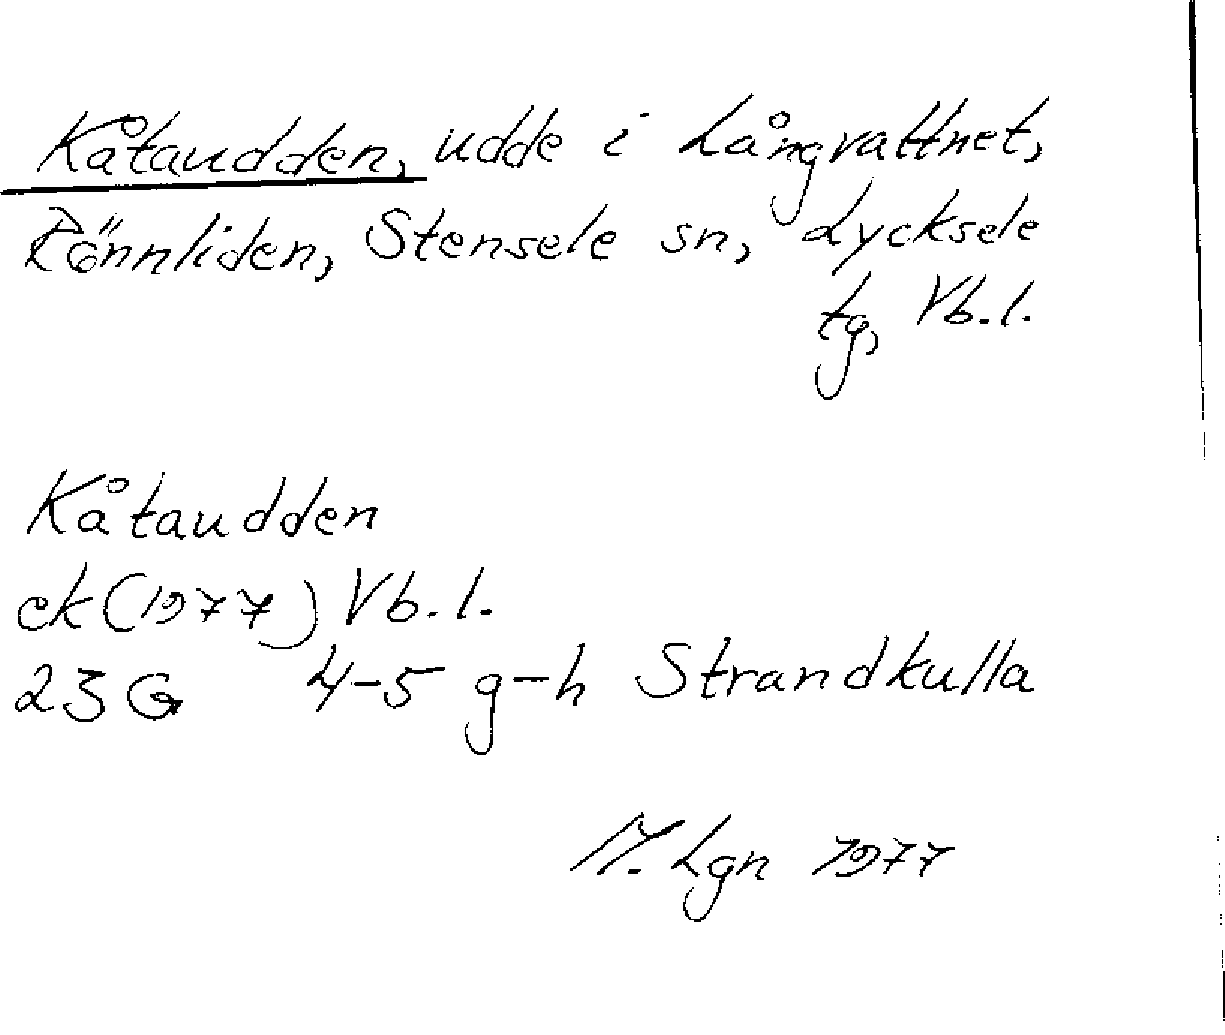 Kåtaudden, udde i Långvattnet,
Rönnliden, Stensele sn, Lycksele
tg, Vb.l.
Kåtaudden
ek (1977) Vb.l.
23 G 4-5 g-h Strandkulla
M. Lgn 1977